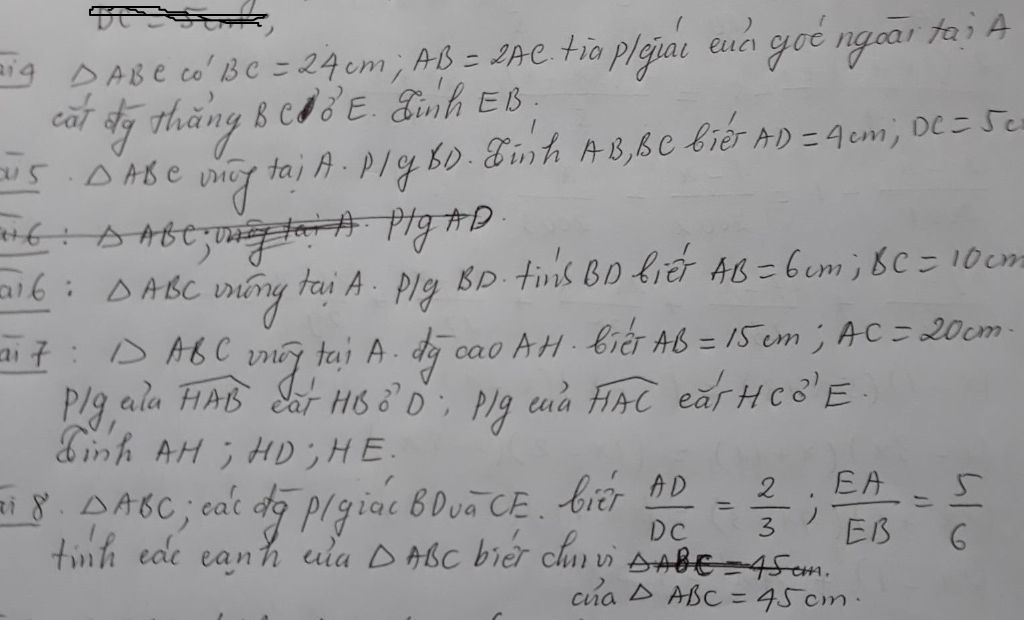 DC = 5cm,
ai 4 Δ ABC có BC = 24 cm; AB = 2AC. tia p/giác của góc ngoài tại A
cắt đg thẳng BC ở E. Tính EB.
ài 5. Δ ABC vuông tại A. P/g BD. Tính AB, BC biết AD = 4cm; DC = 5c
ài 6 : Δ ABC; vuông tại A. P/g AD.
ài 6 : Δ ABC vuông tại A. p/g BD. tính BD biết AB = 6cm; BC = 10cm
ài 7 : Δ ABC vuông tại A. đg cao AH. biết AB = 15 cm; AC = 20cm.
P/g của HAB cắt HB ở D; p/g của HAC cắt HC ở E.
Tính AH ; HD ; HE.
ài 8. Δ ABC; các đg p/giác BD và CE. biết AD/DC = 2/3 ; EA/EB = 5/6
tính các cạnh của Δ ABC biết chu vi Δ ABC = 45 cm.
của Δ ABC = 45 cm.